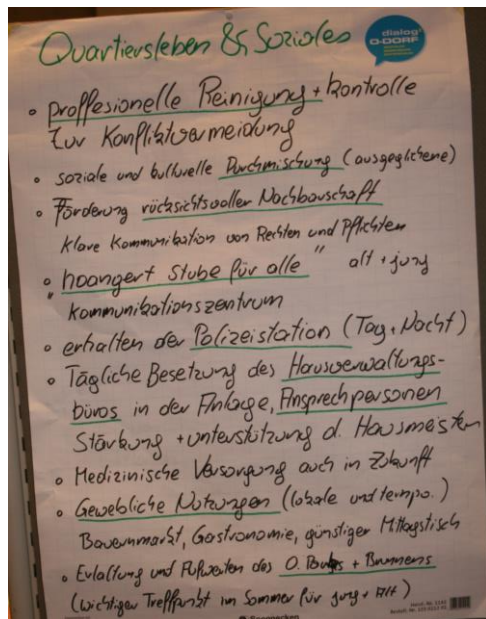 Quartiersleben & Soziales
dialog
O-DORF
• proffesionelle Reinigung + kontrolle
zur Konfliktvermeidung
• soziale und kulturelle Durchmischung (ausgeglichene)
• Förderung rücksichtsvoller Nachbarschaft
klare Kommunikation von Rechten und Pflichten
• "hoangert Stube für alle" alt + jung
kommunikationszentrum
• erhalten der Polizeistation (Tag + Nacht)
• Tägliche Besetzung des Hausverwaltungs-
büros in der Anlage, Ansprechpersonen
Stärkung + unterstützung d. Hausmeister
• Medizinische Versorgung auch in Zukunft
• Gewebliche Nutzungen (lokale und tempo.)
Bauernmarkt, Gastronomie, günstiger Mittagstisch
• Erhaltung und Aufwerten des O. Parks + Brunnens
(wichtiger Treffpunkt im Sommer für jung + Alt)